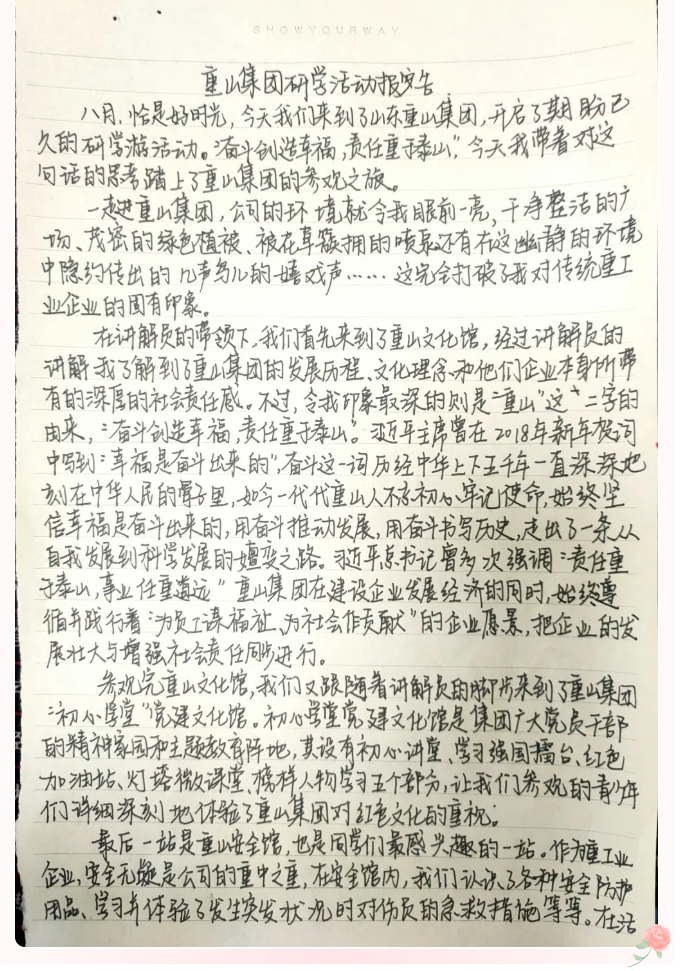 SHOWYOURWAY
重山集团研学活动报告
八月,恰是好时光,今天我们来到了山东重山集团,开启了期盼已
久的研学游活动。“奋斗创造幸福,责任重于泰山”,今天我带着对这
句话的思考踏上了重山集团的参观之旅。
一走进重山集团,公司的环境就令我眼前一亮,干净整洁的广
场、茂密的绿色植被、被花草簇拥的喷泉还有在这幽静的环境
中隐约传出的几声鸟儿的嬉戏声……这完全打破了我对传统重工
业企业的固有印象。
在讲解员的带领下,我们首先来到了重山文化馆,经过讲解员的
讲解我了解到了重山集团的发展历程、文化理念和他们企业本身所带
有的深厚的社会责任感。不过,令我印象最深的则是“重山”这二字的
由来,“奋斗创造幸福,责任重于泰山”。习近平主席曾在2018年新年贺词
中写到:“幸福是奋斗出来的”,奋斗这一词历经中华上下五千年一直深深地
刻在中华人民的骨子里,如今一代代重山人不忘初心牢记使命,始终坚
信幸福是奋斗出来的,用奋斗推动发展,用奋斗书写历史,走出了一条从
自我发展到科学发展的嬗变之路。习近平总书记曾多次强调:“责任重
于泰山,事业任重道远”重山集团在建设企业发展经济的同时,始终尊
循并践行着“为员工谋福祉、为社会作贡献”的企业愿景,把企业的发
展壮大与增强社会责任同步进行。
参观完重山文化馆,我们又跟随着讲解员的脚步来到了重山集团
“初心学堂”党建文化馆。初心学堂党建文化馆是集团广大党员干部
的精神家园和主题教育阵地,其设有初心讲堂、学习强国擂台、红色
加油站、灯塔微课堂、榜样人物学习五个部分,让我们参观的青少年
们详细深刻地体验了重山集团对红色文化的重视。
最后一站是重山安全馆,也是同学们最感兴趣的一站。作为重工业
企业,安全无疑是公司的重中之重,在安全馆内,我们认识了各种安全防护
用品、学习并体验了发生突发状况时对伤员的急救措施等等。在活